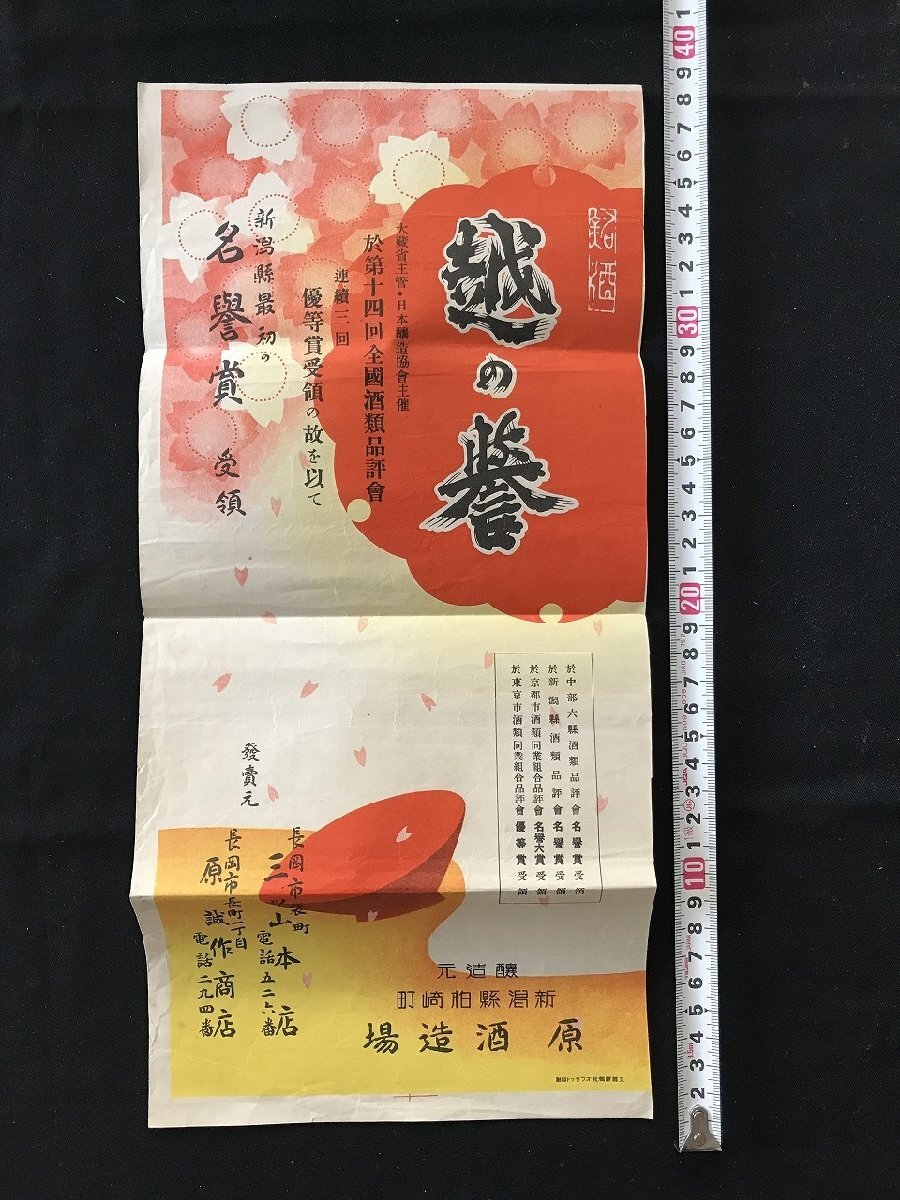 銘酒
越の譽
大藏省主管・日本釀造協會主催
於第十四回全國酒類品評會
連續三回
優等賞受領の故を以て
新潟縣最初の
名譽賞 受領
於中部六縣酒類品評會名譽賞受領
於新潟縣酒類品評會名譽賞受領
於京都市酒類同業組合品評會名譽大賞受領
於東京市酒類同業組合品評會優等賞受領
發賣元
長岡市表町
三ツ山本店
電話五二六番
長岡市長町一丁目
原誠作商店
電話二九四番
元造釀
町崎柏縣潟新
場造酒原
1 40 9 8 7 6 5 4 3 2 1 30 9 8 7 6 5 4 3 2 1 20 9 8 7 6 5 4 3 2 1 10 9 8 7 6 5 4 3 2